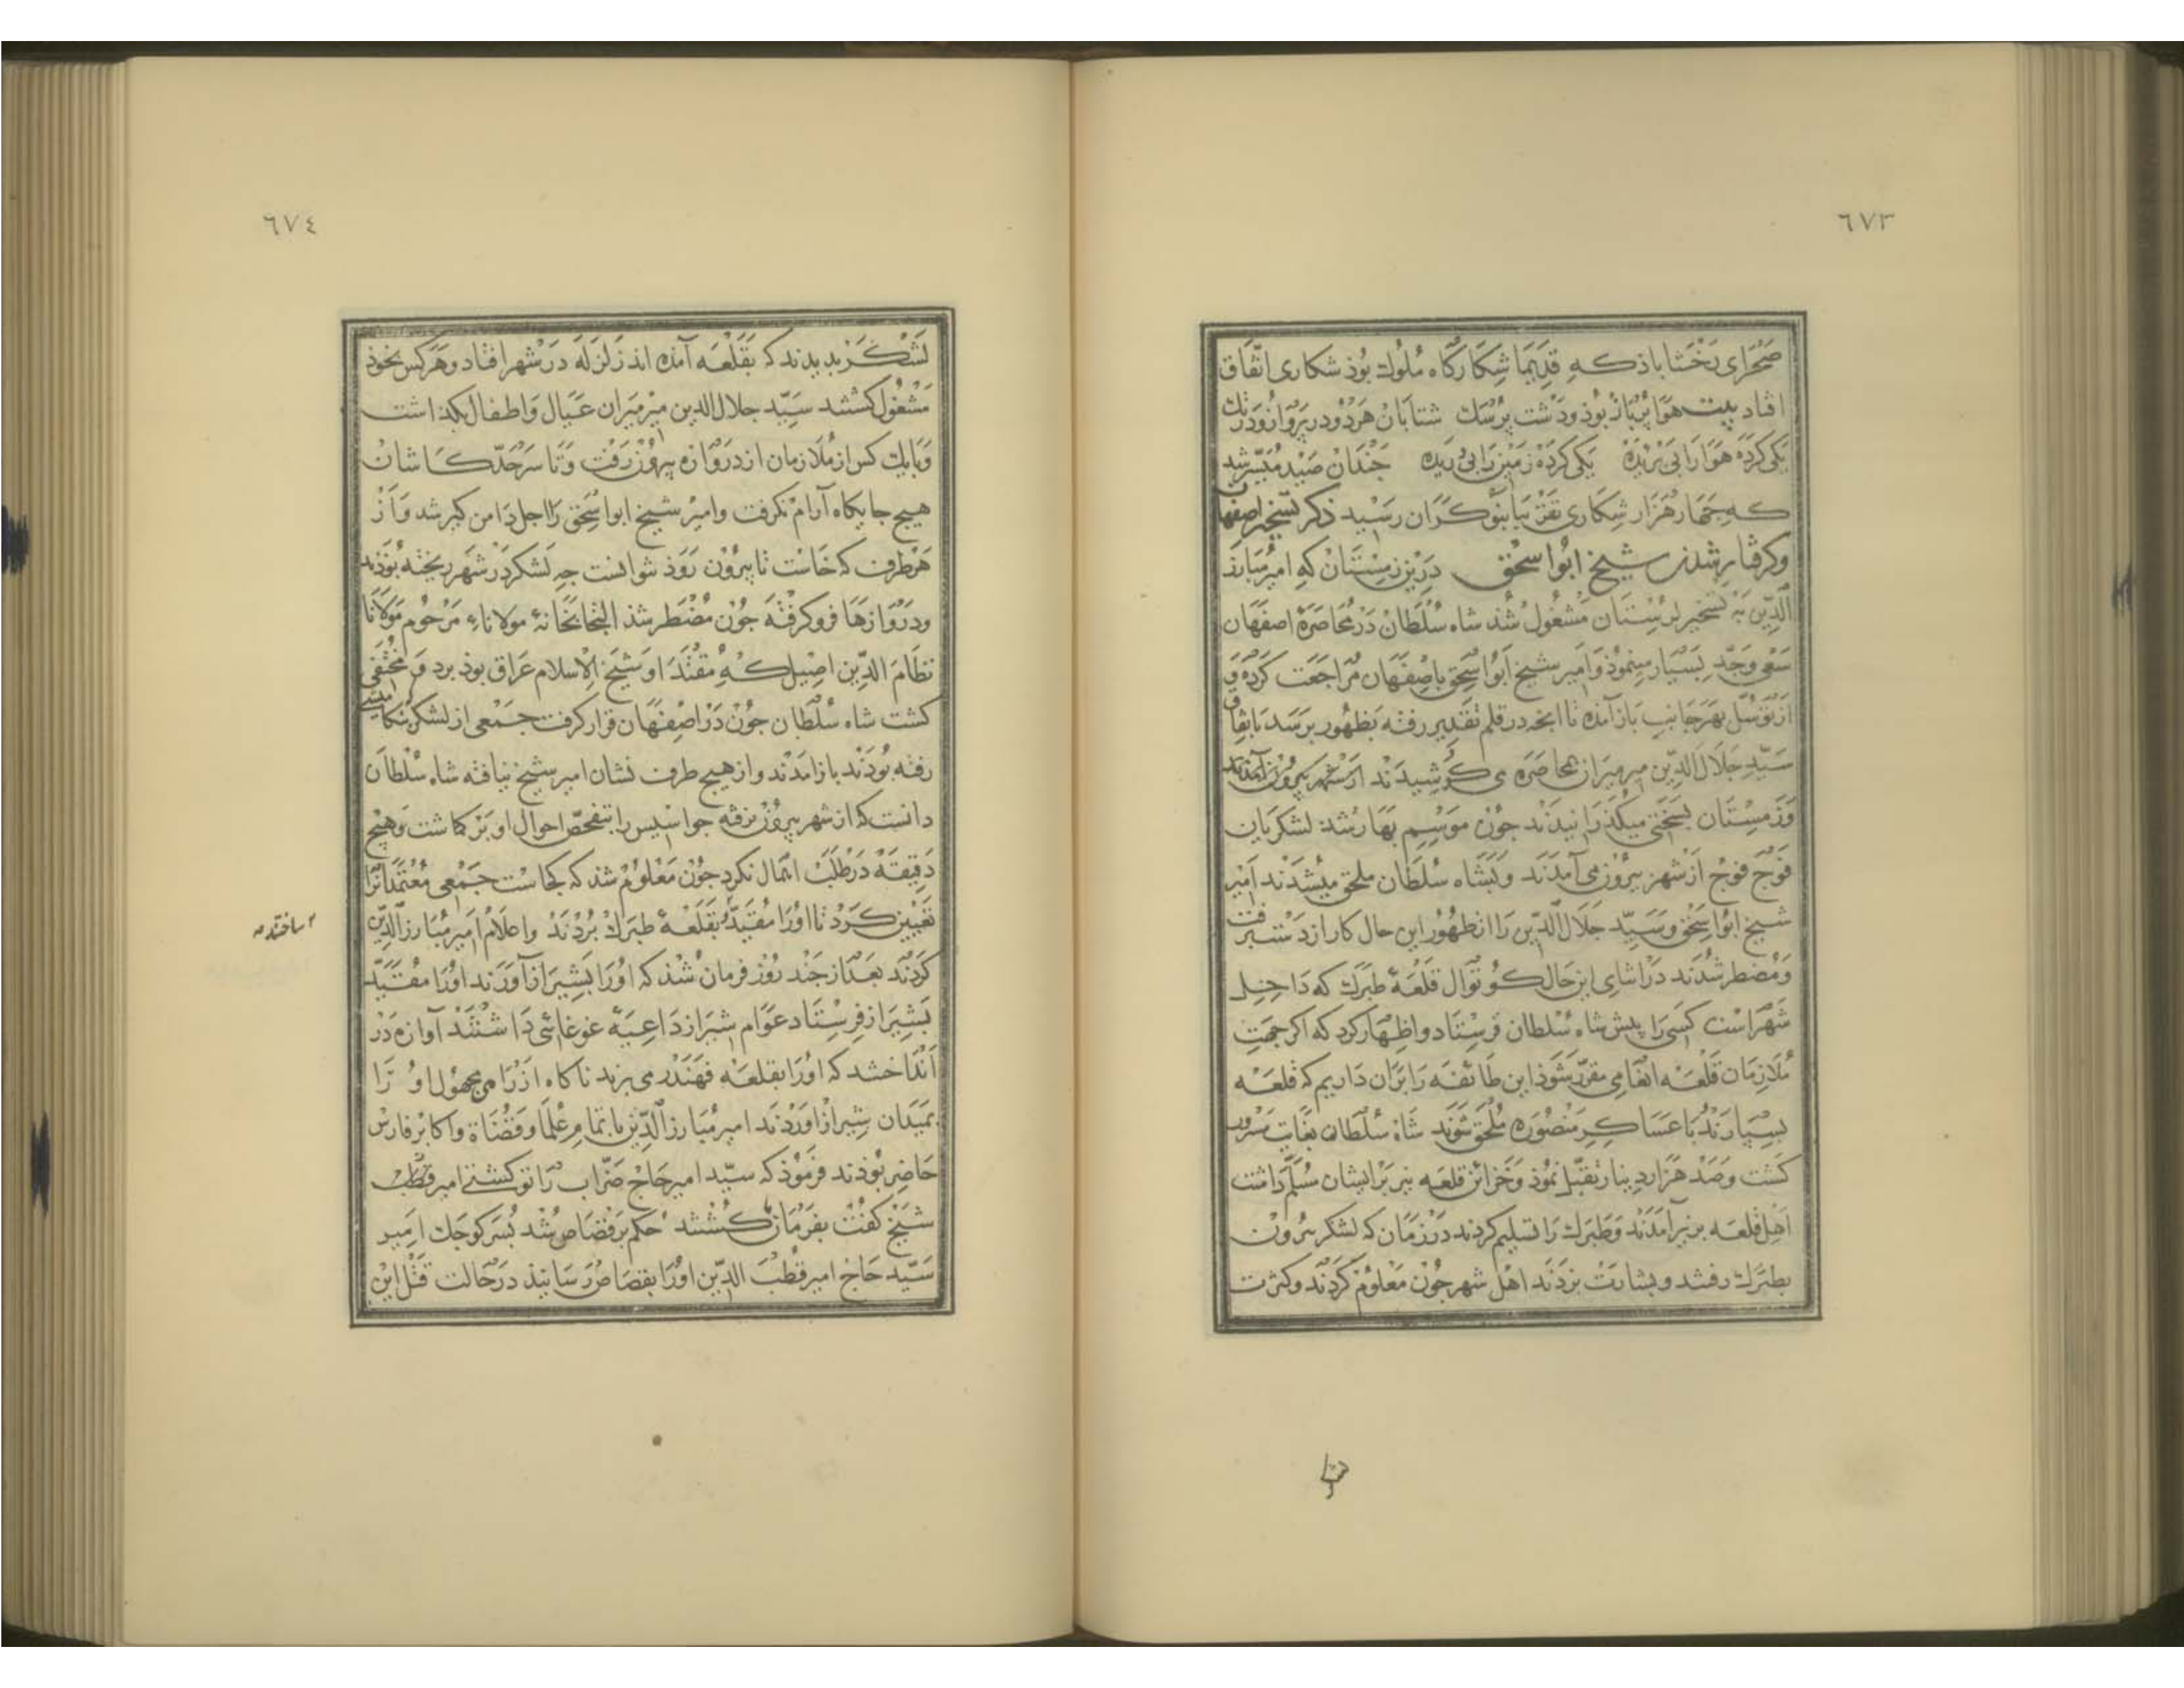 ٦٧٣
صحرای رخشاباذ که قدیما شکارکاه ملوک بوذ شکاری اتفاق
افتاد بیت هوا پرباز بوذ ودشت پرسک شتابان هردو در پرواز ودر تک
یکی کرده هوا را بی پرنده یکی کرده زمین را بی دونده چندان صید میسر شد
که چهار هزار شکاری بقتر بیابنوکران رسید ذکر تسخیر اصفهان
وکرفتار شدن شیخ ابوا سحق درین زمستان که امیر مبارز
الدین به تسخیر لرستان مشغول شد شاه سلطان در محاصره اصفهان
سعی وجد بسیار مینموذ وامیر شیخ ابوا سحق باصفهان مراجعت کرده و
از توسل بهر جانب بازآمده تا انچه در قلم تقدیر رفته بظهور برسد باتفاق
سید جلال الدین میرمیران محاصره می کوشیدند از شهر بیرون آمدند
وزمستان بسختی میکذرانیدند جون موسم بهار شد لشکریان
فوج فوج از شهر بیرون می آمدند وبشاه سلطان ملحق میشدند امیر
شیخ ابوا سحق وسید جلال الدین را از ظهور این حال کار از دست برفت
ومضطر شدند در اثنای این حال کوتوال قلعه طبرک که داخل
شهر است کسی را پیش شاه سلطان فرستاد واظهار کرد که اکر جهت
ملازمان قلعه انعامی مقرر شوذ این طائفه را بران داریم که قلعه
بسپارند با عساکر منصوره ملحق شوند شاه سلطان بغایت مسرور
کشت وصد هزار دینار تقبل نموذ وخزائن قلعه نیز بر ایشان مسلم داشت
اهل قلعه بزیر آمدند وطبرک را تسلیم کردند در زمان که لشکر بیرون
بطبرک رفتند وبشارت بزدند اهل شهر جون معلوم کردند وکثرت
٦٧٤
لشکر بدیدند که بقلعه آمده اند زلزله در شهر افتاد وهرکس بخوذ
مشغول کشتند سید جلال الدین میرمیران عیال واطفال بکذاشت
وبایک کس از ملازمان از دروازه بیرون رفت وتا سرحد کاشان
هیچ جایکاه آرام نکرفت وامیر شیخ ابوا سحق را اجل دامن کیر شد واز
هر طرف که خاست تا بیرون روذ نتوانست جه لشکر در شهر ریخته بوذند
ودروازها فرو کرفته جون مضطر شذ التجا بخانهٔ مولاناء مرحوم مولانا
نظام الدین اصیل که مقتدا وشیخ الاسلام عراق بوذ برد ومختفی
کشت شاه سلطان جون در اصفهان قرار کرفت جمعی از لشکر بتکامیشی
رفته بوذند بازآمدند واز هیچ طرف نشان امیر شیخ نیافته شاه سلطان
دانست که از شهر بیرون نرفته جواسیس را بتفحص احوال او برکماشت وهیچ
دقیقه در طلب اهمال نکرد جون معلوم شذ که کجاست جمعی معتمدانرا
تعیین کرد تا اورا مقید بقلعه طبرک بردند واعلام امیر مبارز الدین
ساختند
کردند بعد از جند روز فرمان شذ که اورا بشیراز آورند اورا مقید
بشیراز فرستاد عوام شیراز داعیه غوغائی داشتند آوازه در
انداختند که اورا بقلعه قهندر می برید ناکاه از راهی مجهول او را
بمیدان شیراز اوردند امیر مبارز الدین باتمام علما وقضاة واکابر فارس
حاضر بوذند فرموذ که سید امیر حاج ضراب را تو کشتی امیر
شیخ کفت بفرمان ما کشتند حکم بر قصاص شد پسر کوجک امیر
سید حاج امیر قطب الدین اورا بقصاص رسانیذ در حالت قتل این